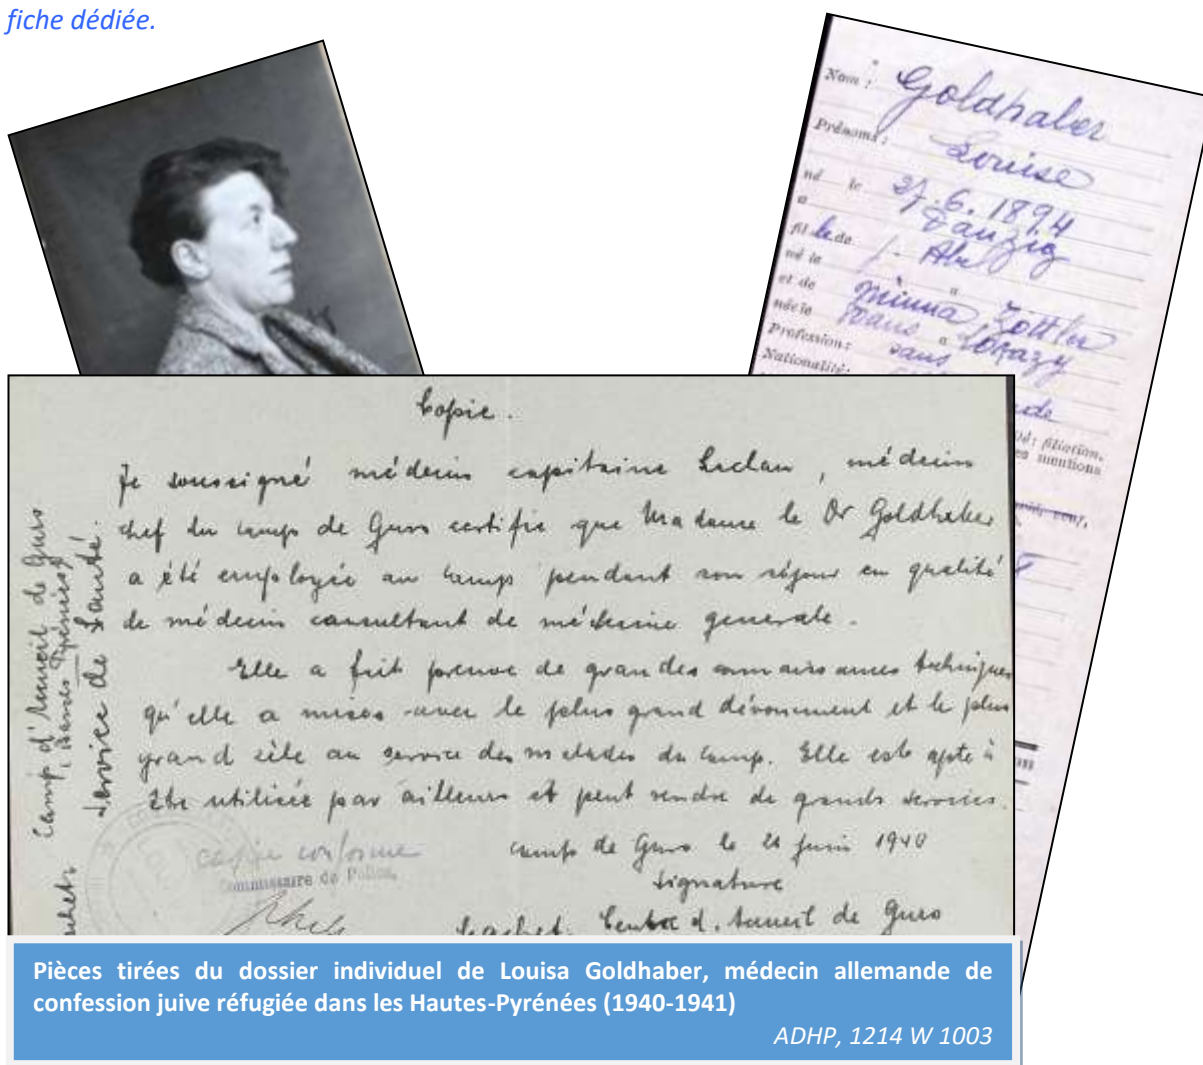 fiche dédiée.
Nom : Goldhaber
Prénoms : Louise
né le 27.6.1894
a Danzig
fil le de Abr
né le a
et de Minna Zottler
née le dans a
Profession : sans
Nationalité :
filiation,
es mentions
Copie.
Je soussigné médecin capitaine Leclau, médecin
chef du camps de Gurs certifie que Madame le Dr Goldhaber
a été employée au camp pendant son séjour en qualité
de médecin consultant de médecine generale.
Elle a fait preuve de grandes connaissances techniques
qu'elle a mises avec le plus grand dévouement et le plus
grand zèle au service des malades du camp. Elle est apte à
être utilisée par ailleurs et peut rendre de grands services.
camp de Gurs le 21 juin 1940
Signature
Cachet. Centre d. Accueil de Gurs
Camp d'Accueil de Gurs
Basses Pyrénées
Service de Santé.
copie conforme
Commissaire de Police,
Pièces tirées du dossier individuel de Louisa Goldhaber, médecin allemande de
confession juive réfugiée dans les Hautes-Pyrénées (1940-1941)
ADHP, 1214 W 1003